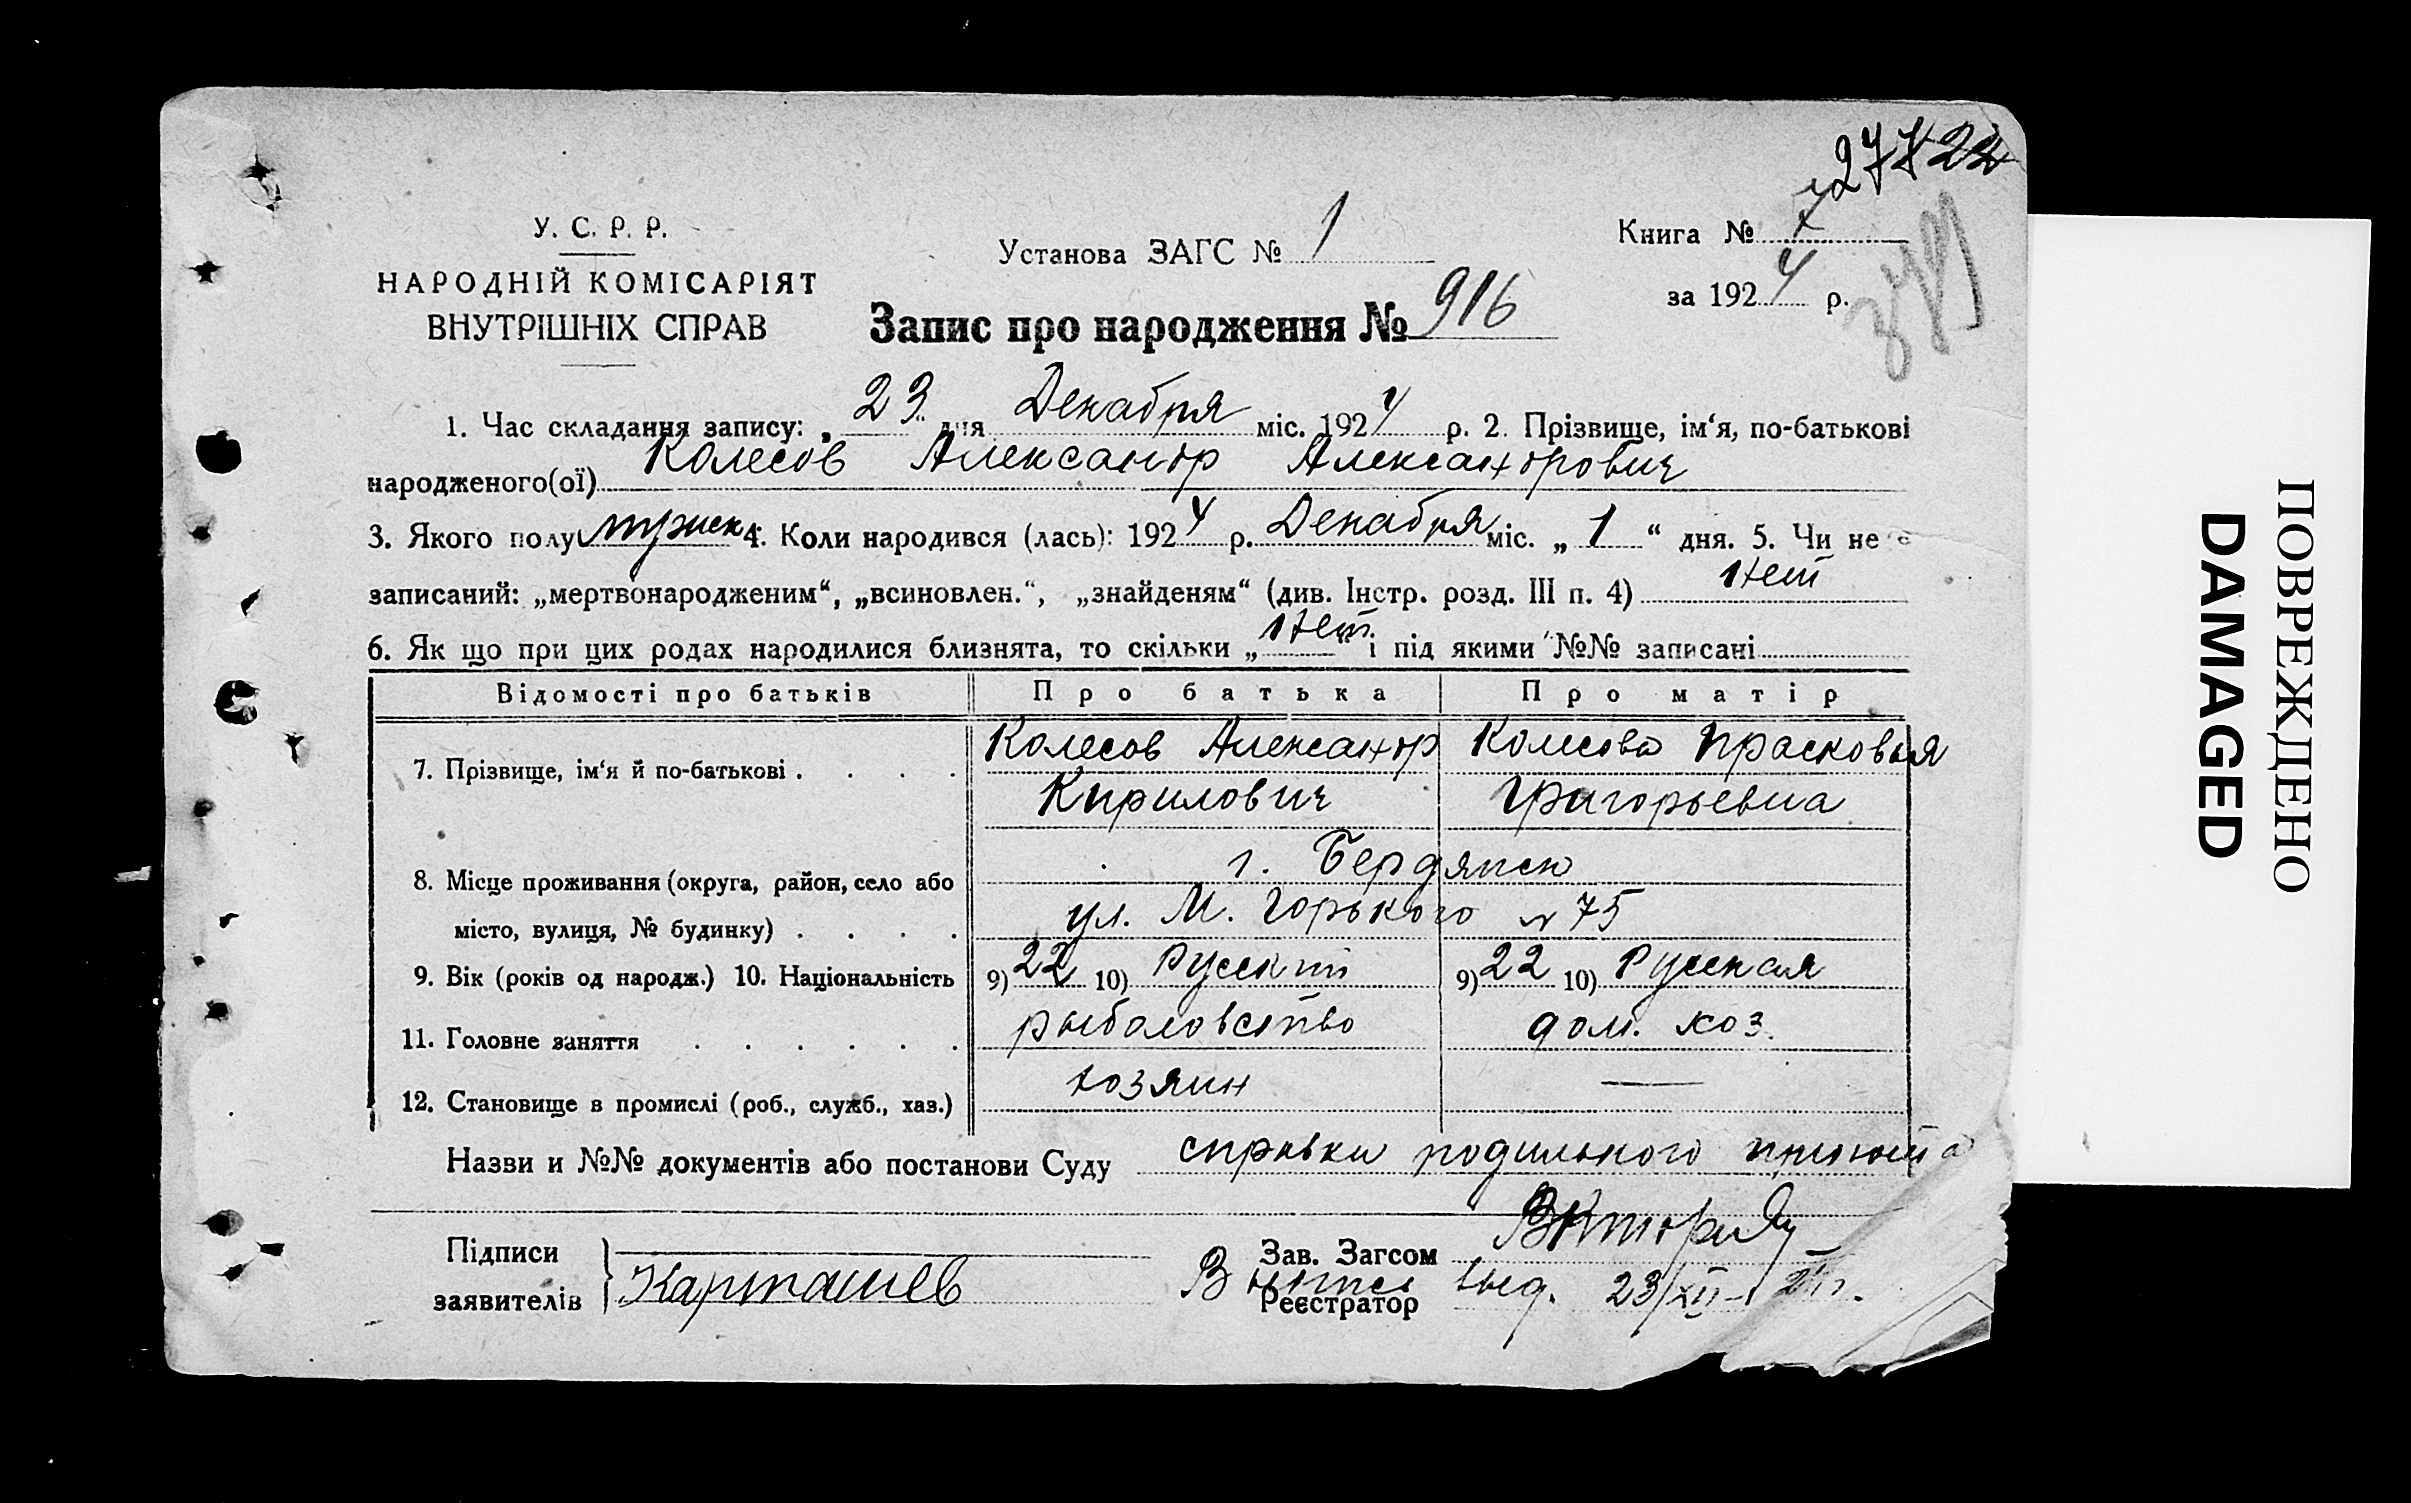 27724
У. С. Р. Р.
НАРОДНІЙ КОМІСАРІЯТ
ВНУТРІШНІХ СПРАВ
Установа ЗАГС № 1
Запис про народження № 916
Книга № 7
за 1924 р.
1. Час складання запису: „23“ дня Декабря міс. 1924 р. 2. Прізвище, ім‘я, по-батькові
народженого(ої) Колесов Александр Александрович
3. Якого полу мужск 4. Коли народився (лась): 1924 р. Декабря міс. „1“ дня. 5. Чи не є
записаний: „мертвонародженим“, „всиновлен.“, „знайденям“ (див. Інстр. розд. III п. 4) нет
6. Як що при цих родах народилися близнята, то скільки „нет“ і під якими №№ записані
Відомості про батьків Про батька Про матір
7. Прізвище, ім‘я й по-батькові . . . . Колесов Александр Колесова Прасковья
Кирилович Григорьевна
8. Місце проживання (округа, район, село або г. Бердянск
місто, вулиця, № будинку) . . . . ул. М. Горького № 75
9. Вік (років од народж.) 10. Національність 9) 22 10) Русский 9) 22 10) Русская
11. Головне заняття . . . . . . рыболовство дом. хоз.
12. Становище в промислі (роб., служб., хаз.) хозяин —
Назви и №№ документів або постанови Суду справка родильного приюта
Підписи
заявителів
Карташев
Зав. Загсом
Реєстратор
выд. 23/XII-24 г.
ПОВРЕЖДЕНО
DAMAGED